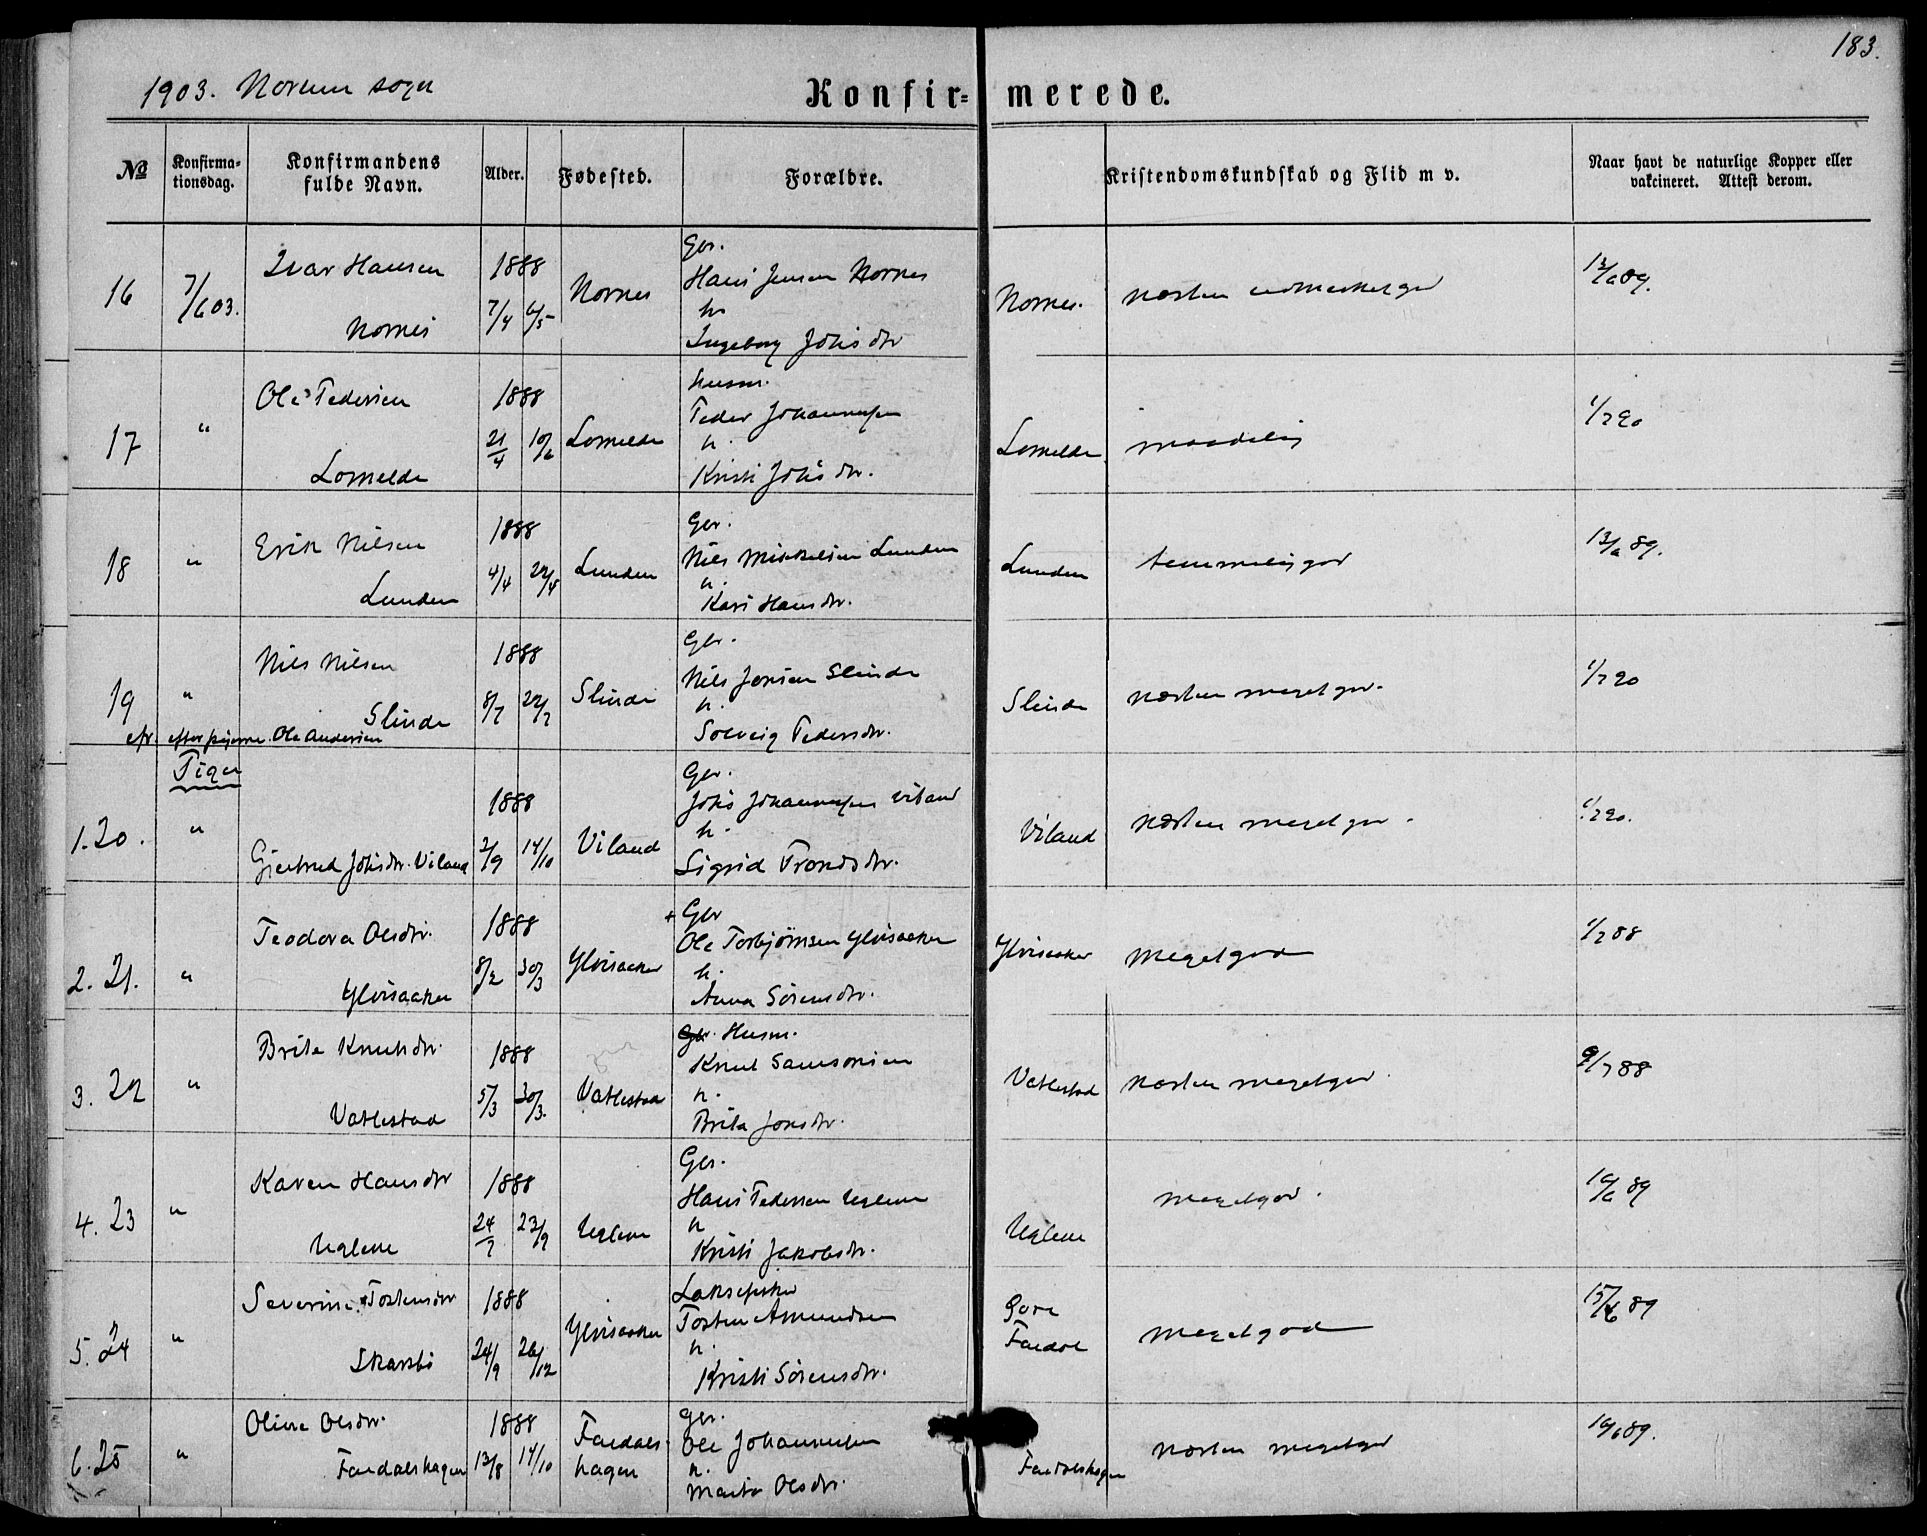 183.
1903. Norum sogn
Konfir= merede.
No
Konfirma=
tionsdag.
Konfirmandens
fulde Navn.
Alder.
Fødested.
Forældre.
Kristendomskundskab og Flid m v.
Naar havt de naturlige Kopper eller
vakcineret. Attest derom.
16 7/6 03. Ivar Hansen Nornes 1888 7/4 6/5 Nornes
Gbr.
Hans Jensen Nornes
h.
Ingeborg Johsdtr
Nornes. næsten udmerketgod 13/6 89.
17 " Ole Pedersen Lomelde 1888 21/4 10/6 Lomelde
Husm.
Peder Johannesen
h.
Kristi Johsdtr.
Lomelde maadelig 1/7 90
18 " Erik Nilsen Lunden 1888 4/4 22/4 Lunden
Gbr.
Nils Mikkelsen Lunden
h.
Kari Hansdtr.
Lunden temmeliggod 13/6 89.
19 " Nils Nilsen Slinde 1888 8/7 22/7 Slinde
Gbr.
Nils Jonsen Slinde
h.
Solveig Pedersdtr.
Slinde næsten megetgod. 1/7 90
efter pigerne. Ole Andersen
Piger
1. 20. " Gjertrud Johsdtr. Viland 1888 2/9 14/10 Viland
Gbr.
Johs Johannesen Viland
h.
Sigrid Trondsdtr.
Viland næsten megetgod. 1/7 90.
2. 21. " Teodora Olsdtr. Ylvisaaker 1888 8/2 30/3 Ylvisaaker
+ Gbr
Ole Torbjørnsen Ylvisaaker
h.
Anna Sørensdtr.
Ylvisaaker megetgod 1/7 88
3. 22 " Brita Knutsdtr. Vatlestad 1888 5/3 30/3. Vatlestad
Gbr. Husm.
Knut Samsonsen
h.
Brita Jonsdtr.
Vatlestad næsten megetgod. 9/7 88
4. 23 " Karen Hansdtr Uglum 1888 24/7 23/9 Uglum
Gbr.
Hans Pedersen Uglum
h
Kristi Jakobsdtr.
Uglum megetgod. 19/6 89
5. 24 " Severine Tostensdtr Skarsbø 1888 24/9 26/12 Ylvisaaker
Laksefisker
Tosten Amundsen
h.
Kristi Sørensdtr.
Fardal megetgod 15/6 89
6. 25 " Oline Olsdtr. Fardalshagen 1888 13/8 14/10 Fardals-
hagen
Gbr.
Ole Johannesen
h.
Marta Olsdtr.
Fardalshagen næsten megetgod 19/6 89.